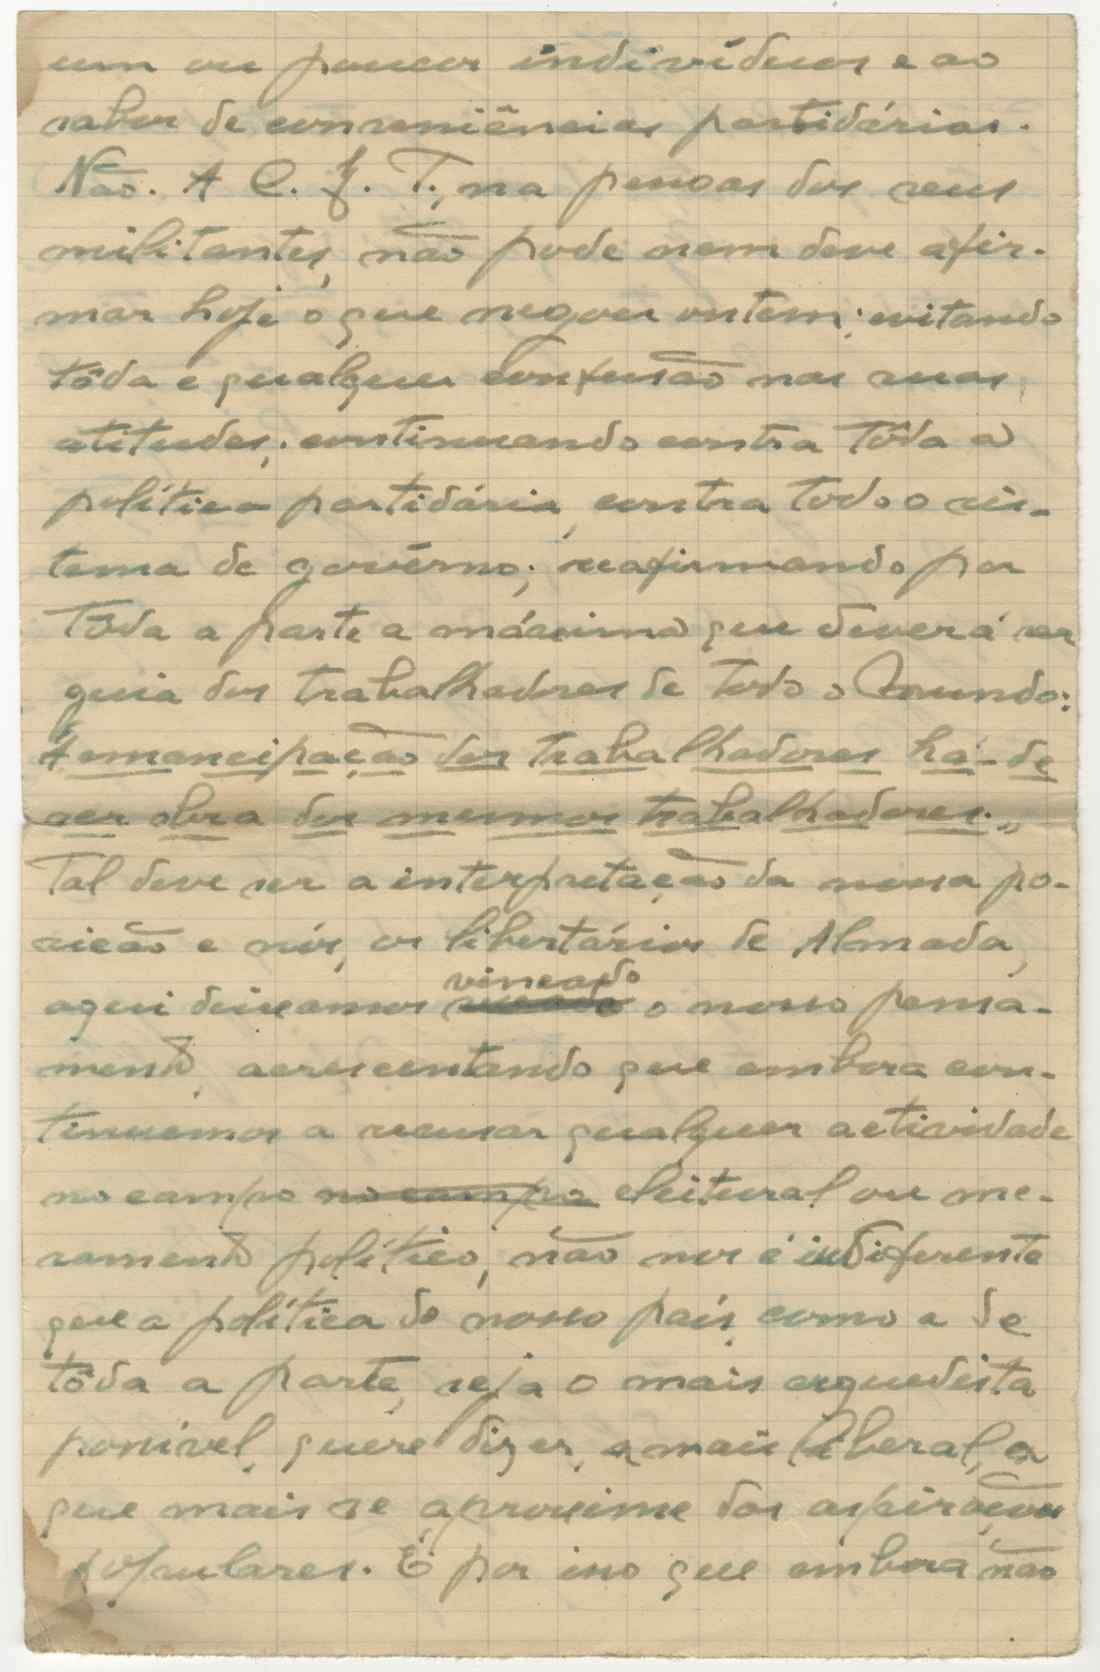 um ou poucos indivíduos e ao
sabor de conveniências partidárias.
Não. A C. G. T., na pessoas dos seus
militantes, não pode nem deve afir-
mar hoje o que negou ontem; evitando
tôda e qualquer confusão nas suas
atitudes; continuando contra tôda a
política partidária, contra todo o sis-
tema de govêrno; reafirmando por
Tôda a parte a máxima que deverá ser
guia dos trabalhadores de todo o Mundo:
A emancipação dos trabalhadores há-de
ser obra dos mesmos trabalhadores.„
Tal deve ser a interpretação da nossa po-
sicão e nós, os libertários de Almada,
aqui deixamos vincado o nosso pensa-
mento, acrescentando que embora con-
tinuemos a recusar qualquer actividade
no campo no campo eleitural ou me-
ramento político, não nos é indiferente
que a política do nosso país, como a de
tôda a parte, seja o mais esquedista
possível, quere dizer, a mais liberal, a
que mais se aproxime das aspirações
populares. É por isso que embora não